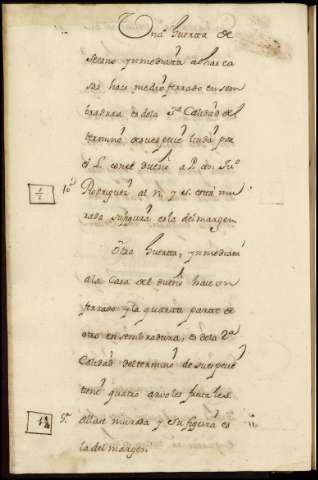 Una huerta de
secano ynmediata a dhas ca
sas hace medio ferrado en sem
bradura es de la 3ª Calidad del
termino de su especie linda por
el L. con el dueño a P. con Juº
Rodriguez al N. y s. está mu
rada su figura es la del margen
Otra huerta, ynmediata
a la Casa del dueño hace un
ferrado y la quarta parte de
otro en sembradura, es de la 2ª
Calidad del termino de su especie
tiene quatro arboles frutales
allase murada y su figura es
la del margen